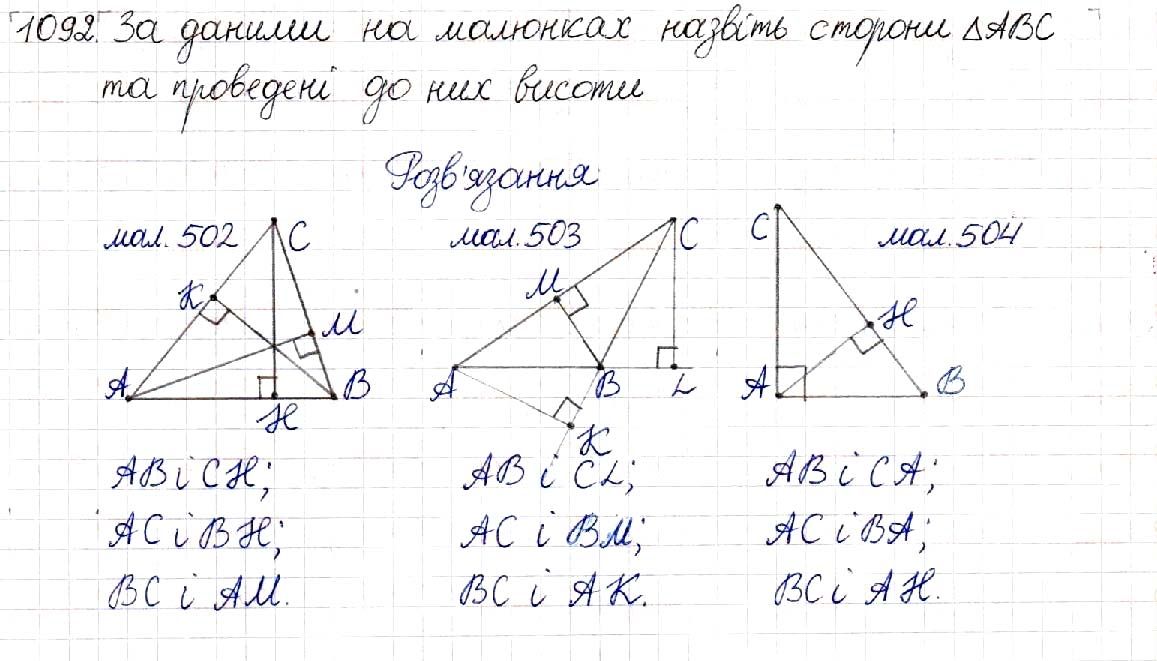 1092. За даними на малюнках назвіть сторони △ABC
та проведені до них висоти
Розв'язання
мал. 502
C
K
M
A
B
H
мал. 503
C
M
A
B
L
K
C
мал. 504
H
A
B
AB і CH;
AC і BH;
BC і AM.
AB і CL;
AC і BM;
BC і AK.
AB і CA;
AC і BA;
BC і AH.